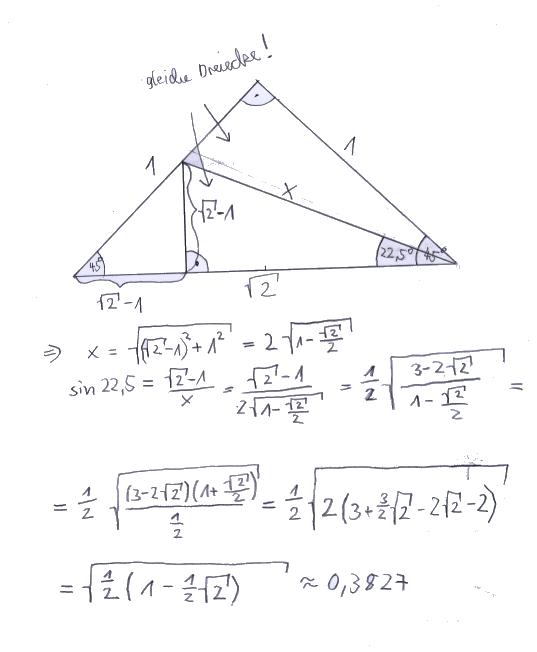 gleiche Dreiecke!
1
1
x
√2-1
45°
22,5°
45°
√2-1
√2
⇒ x = √((√2-1)²+1²) = 2√(1-√2/2)
sin 22,5 = (√2-1)/x = (√2-1)/(2√(1-√2/2)) = 1/2 √((3-2√2)/(1-√2/2)) =
= 1/2 √((3-2√2)(1+√2/2)/(1/2)) = 1/2 √(2(3+3/2√2-2√2-2))
= √(1/2(1-1/2√2)) ≈ 0,3827